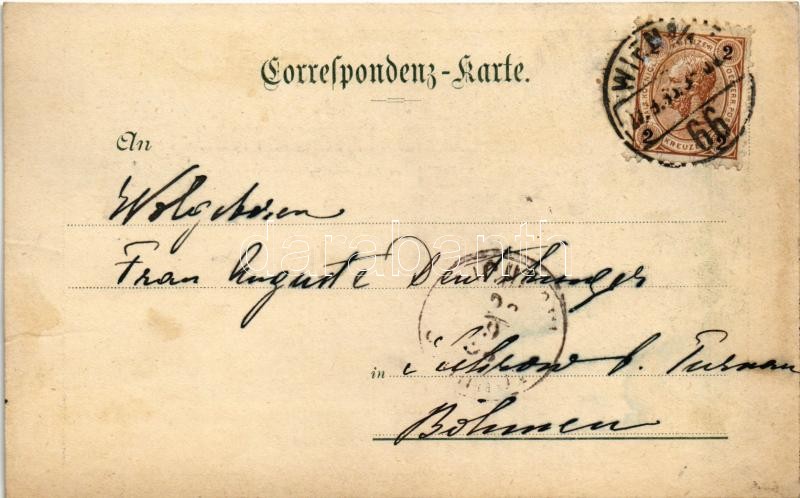 Correspondenz-Karte.
WIEN
66
2
2
KREUZER
An
Wolgeboren
Frau Auguste
in Sichrow b. Turnau
Böhmen
darabanth